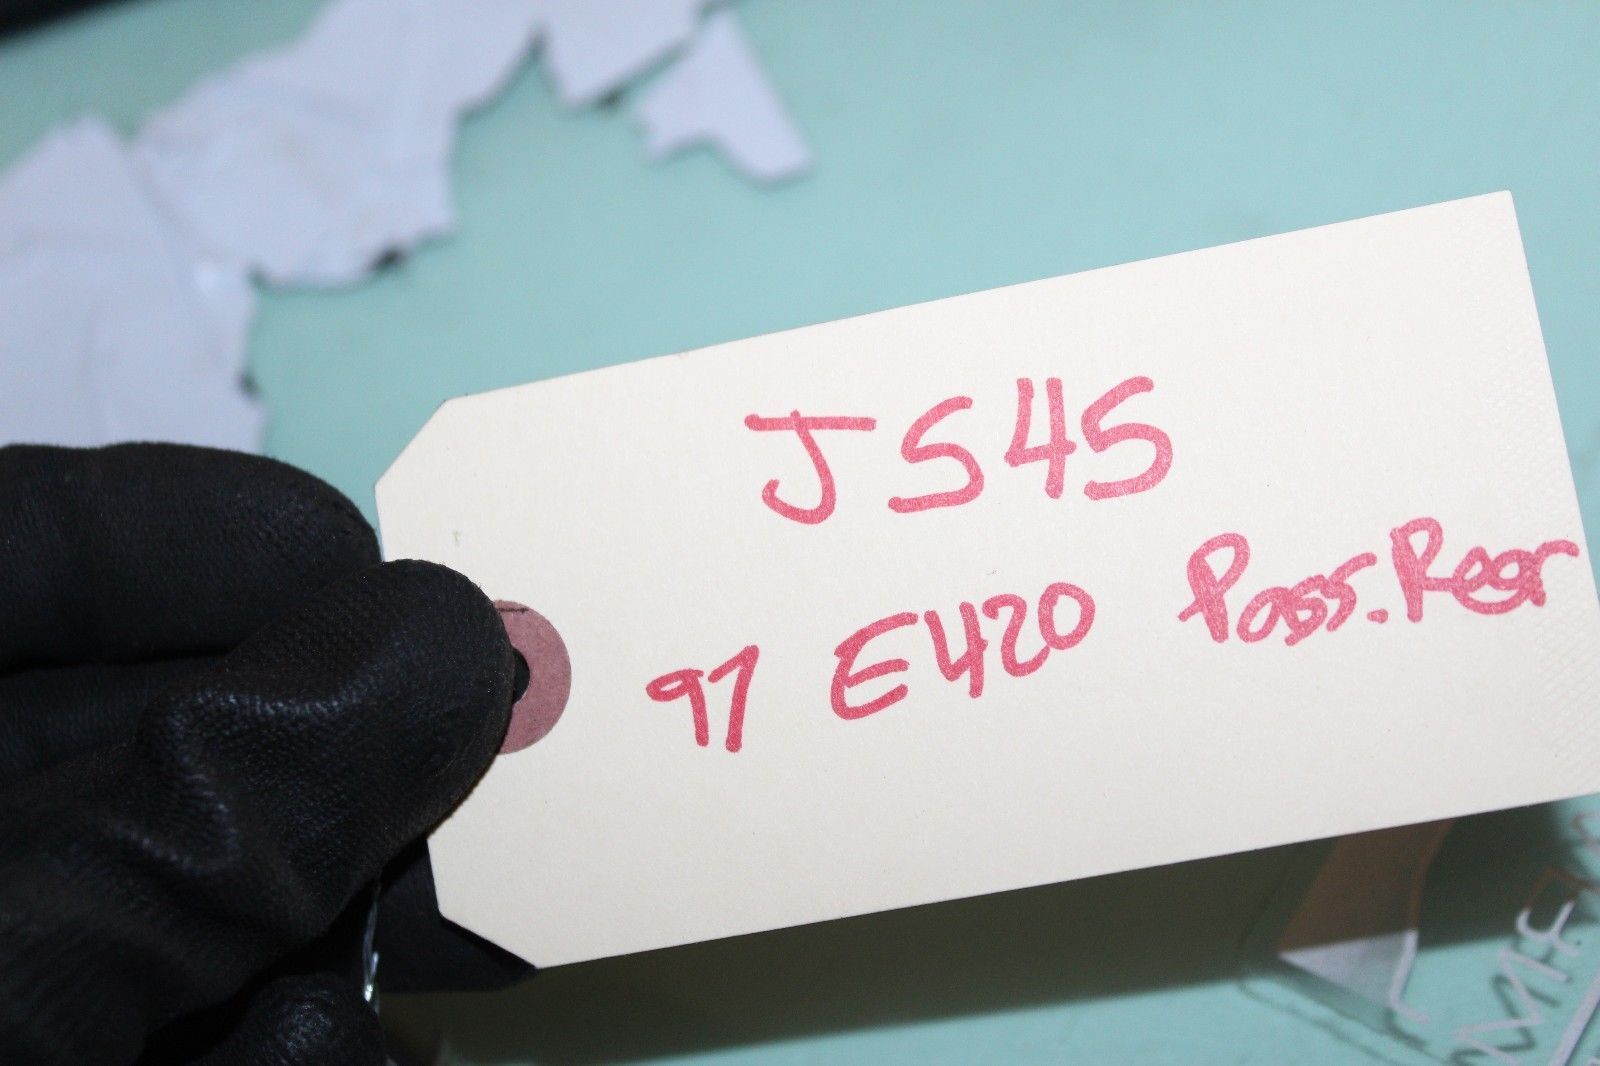 JS45
97 E420 Pass. Rear